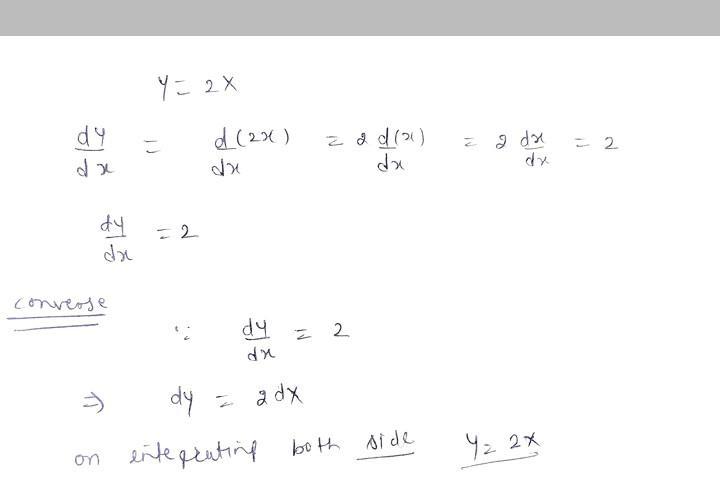 Y = 2X
dy/dx = d(2x)/dx = 2 d(x)/dx = 2 dx/dx = 2
dy/dx = 2
converse
∵ dy/dx = 2
⇒ dy = 2dX
on integrating both side y = 2x